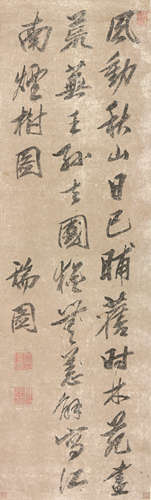 風動秋山日已晡舊時林苑盡
荒蕪王孫去國猶無恙解寫江
南煙樹圖
瑞圖